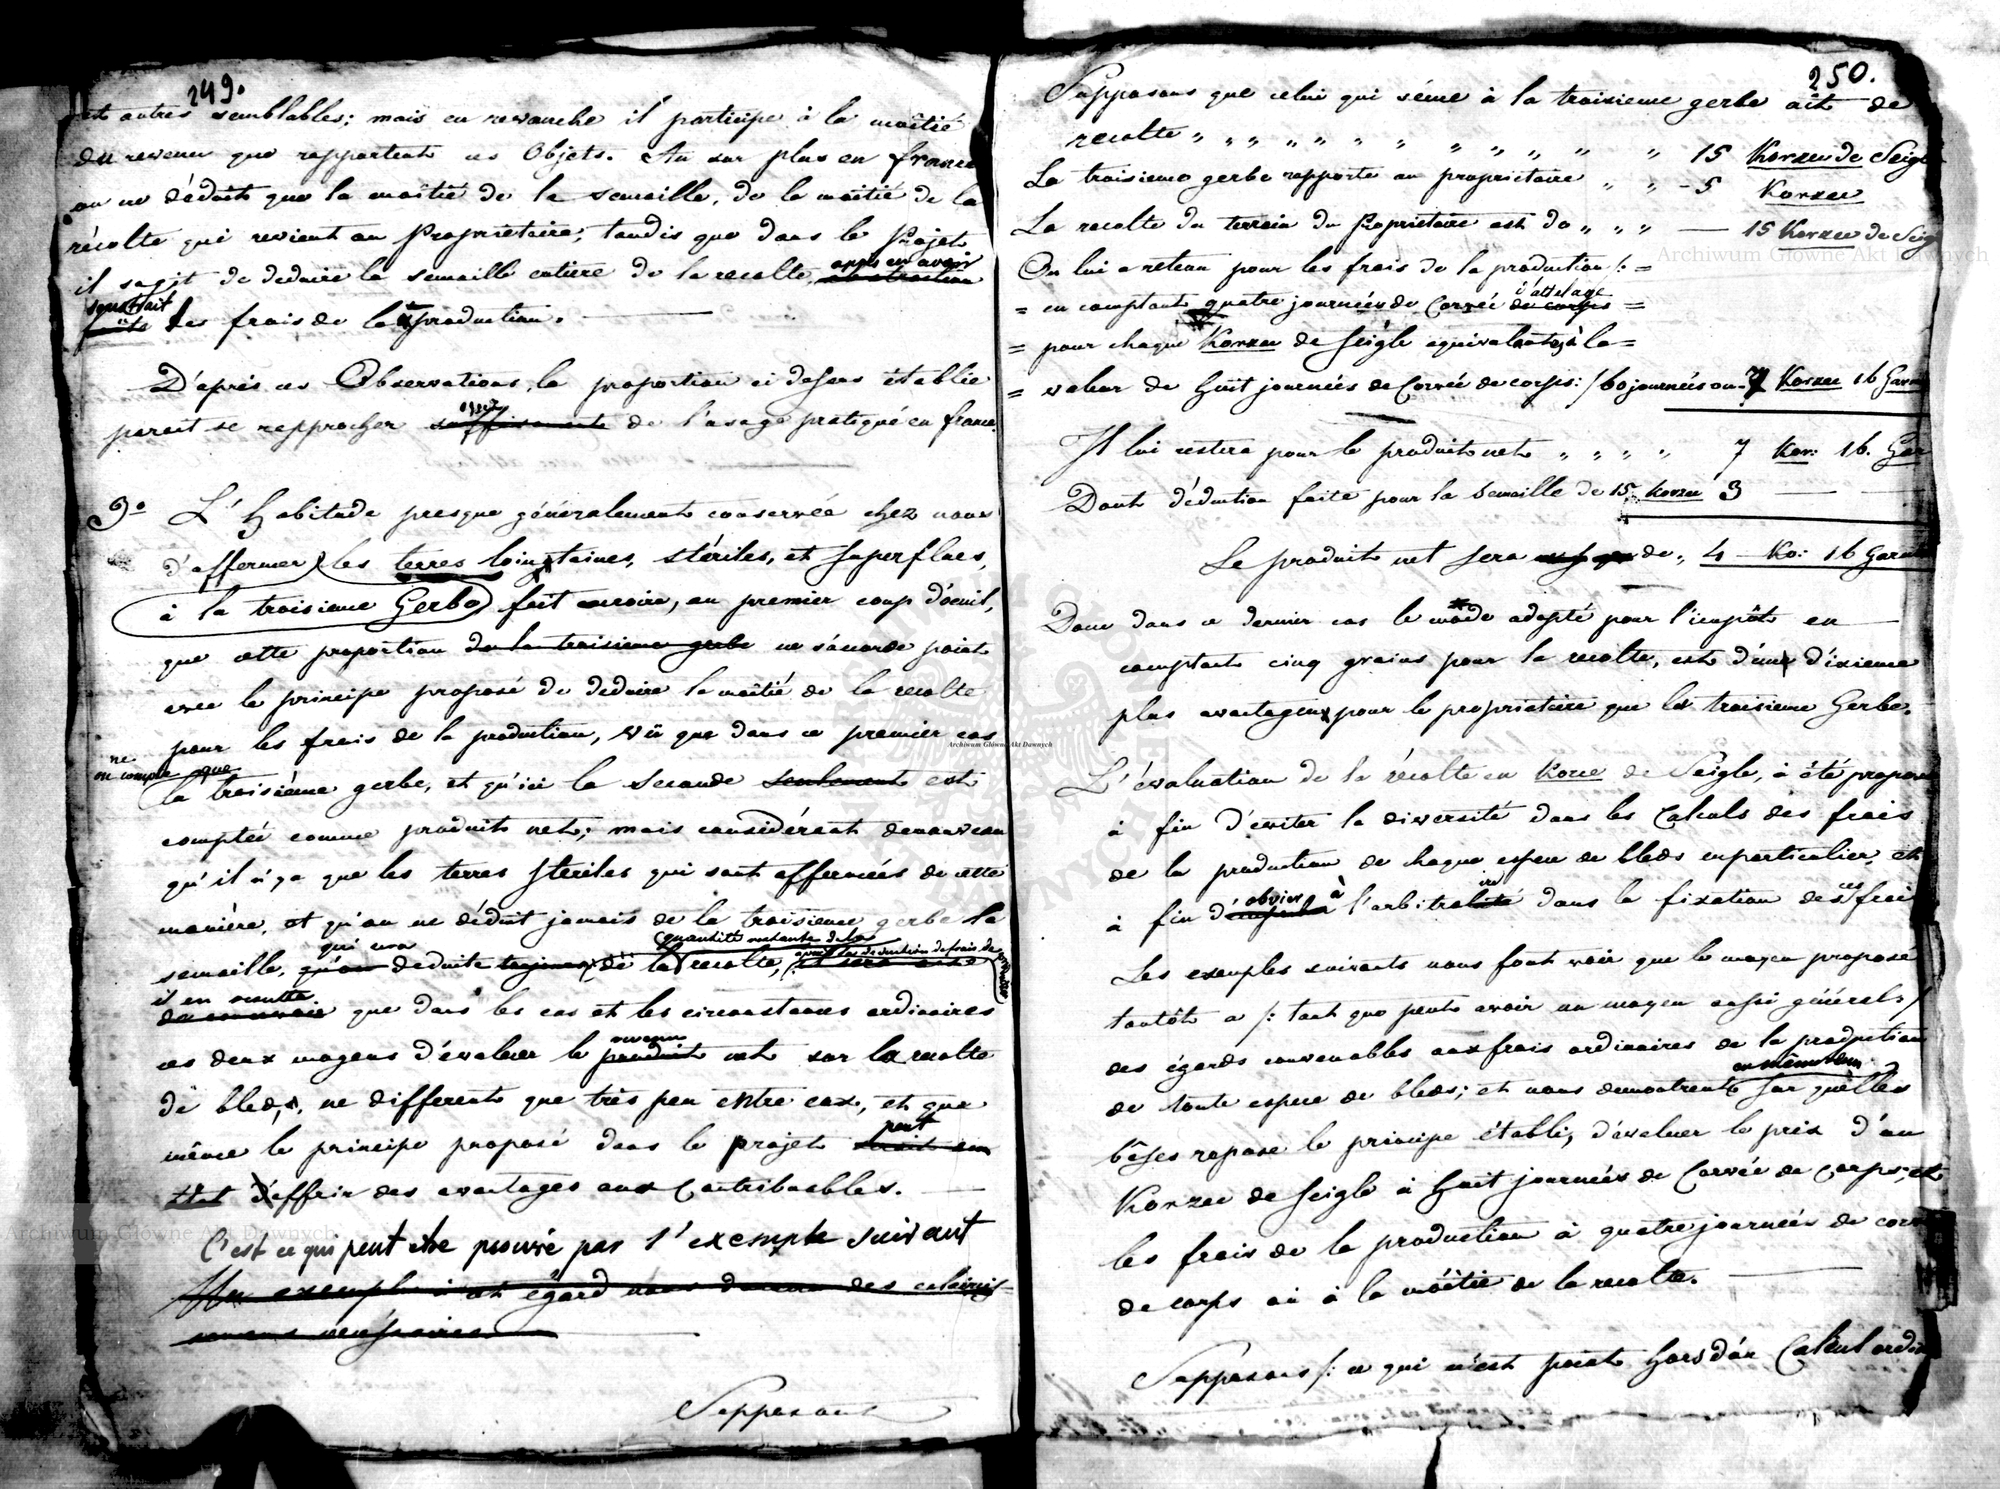 249.
et autres semblables; mais en revanche il participe à la moitié
du revenu que rapportent ces Objets. Au sur plus en france
on ne déduit que la moitié de la semaille, de la moitié de la
récolte qui revient au Proprietaire, tandis que dans le Projet
il sagit de deduire la semaille entiere de la recolte, après en avoir
soustrait les frais de la production.
D'après ces Observations, la proportion ci dessus établie
parait se rapprocher assez de l'usage pratiqué en france.
9º L'Habitude presque généralement conservée chez nous
d'affermer les terres lointaines, stériles, et superflues,
à la troisieme Gerbe fait croire, au premier coup d'oeuil,
que cette proportion de la troisieme gerbe ne s'accorde point
avec le principe proposé de deduire la moitié de la recolte
pour les frais de la production, vû que dans ce premier cas
ne
on compte que
la troisième gerbe, et qu'ici la seconde seulement est
comptée comme produit net; mais considérant denouveau
qu'il n'y a que les terres steriles qui sont affermées de cette
manière, et qu'on ne déduit jamais de la troisieme gerbe la
quantité restante de la
semaille, qui sera deduite toujours de la recolte, après la deduction de frais de
il en resulte
que dans les cas et les circonstances ordinaires
revenu
ces deux moyens d'évaluer le produit net sur la recolte
de bleds, ne different que très peu entre eux, et que
peut
même le principe proposé dans le projet
d'offrir des avantages aux Contribuables.
C'est ce qui peut etre prouvé pas l'exemple suivant
Un exemple à cet égard nous donne des eclaircis-
semens necessaires
Supposons
250.
Supposons que celui qui séme à la troisieme gerbe ait de
recolte " " " " " " " " " " " " 15 Korzec de Seigle
La troisieme gerbe rapporte au proprietaire " " - 5 Korzec
La recolte du terrein du Proprietaire est de " " " — 15 Korzec de Seig
On lui a retenu pour les frais de la production /: =
d'attelage
= en comptant quatre journées de Corvée de corps =
= pour chaque Korzec de Seigle equivalent à la =
= valeur de huit journées de Corvée de corps: / 60 journées ou - 7 Korzec 16 Garni
Il lui restera pour le produit net " " " " 7 Kor: 16. Gar
Dont déduction faite pour la semaille de 15 Korzec 3 —
Le produit net sera de " 4 — Ko: 16 Garni
Donc dans ce dernier cas le mode adopté pour l'impôt en
comptant cinq grains pour la recolte, est d'un dixieme
plus avantageux pour le proprietaire que la troisieme Gerbe.
L'évaluation de la récolte en Korce de Seigle, à été proposé
à fin d'eviter la diversité dans les Calculs des frais
de la production de chaque espece de bleds enparticulier, et
à fin d'obvier à l'arbitraire dans la fixation de ces frais
Les exemples suivants nous font voir que le moyen proposé
tantôt a /: tant que peut avoir un moyen aussi général :/
des égards convenables aux frais ordinaires de la production
en même tem
de toute espece de bleds; et nous demontrent sur quelles
bâses repose le principe établi, d'evaluer le prix d'un
Korzec de Seigle à huit journées de Corvée de Corps, et
les frais de la production à quatre journées de corv
de corps où à la moitié de la recolte.
Supposons /: ce qui n'est point hors d'un Calcul ordin
Archiwum Główne Akt Dawnych
Archiwum Główne Akt Dawnych
Archiwum Główne Akt Dawnych